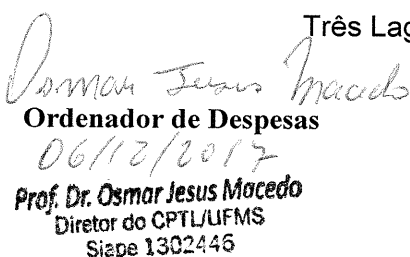 Três Lag
Osmar Jesus Macedo
Ordenador de Despesas
06/12/2017
Prof. Dr. Osmar Jesus Macedo
Diretor do CPTL/UFMS
Siape 1302446